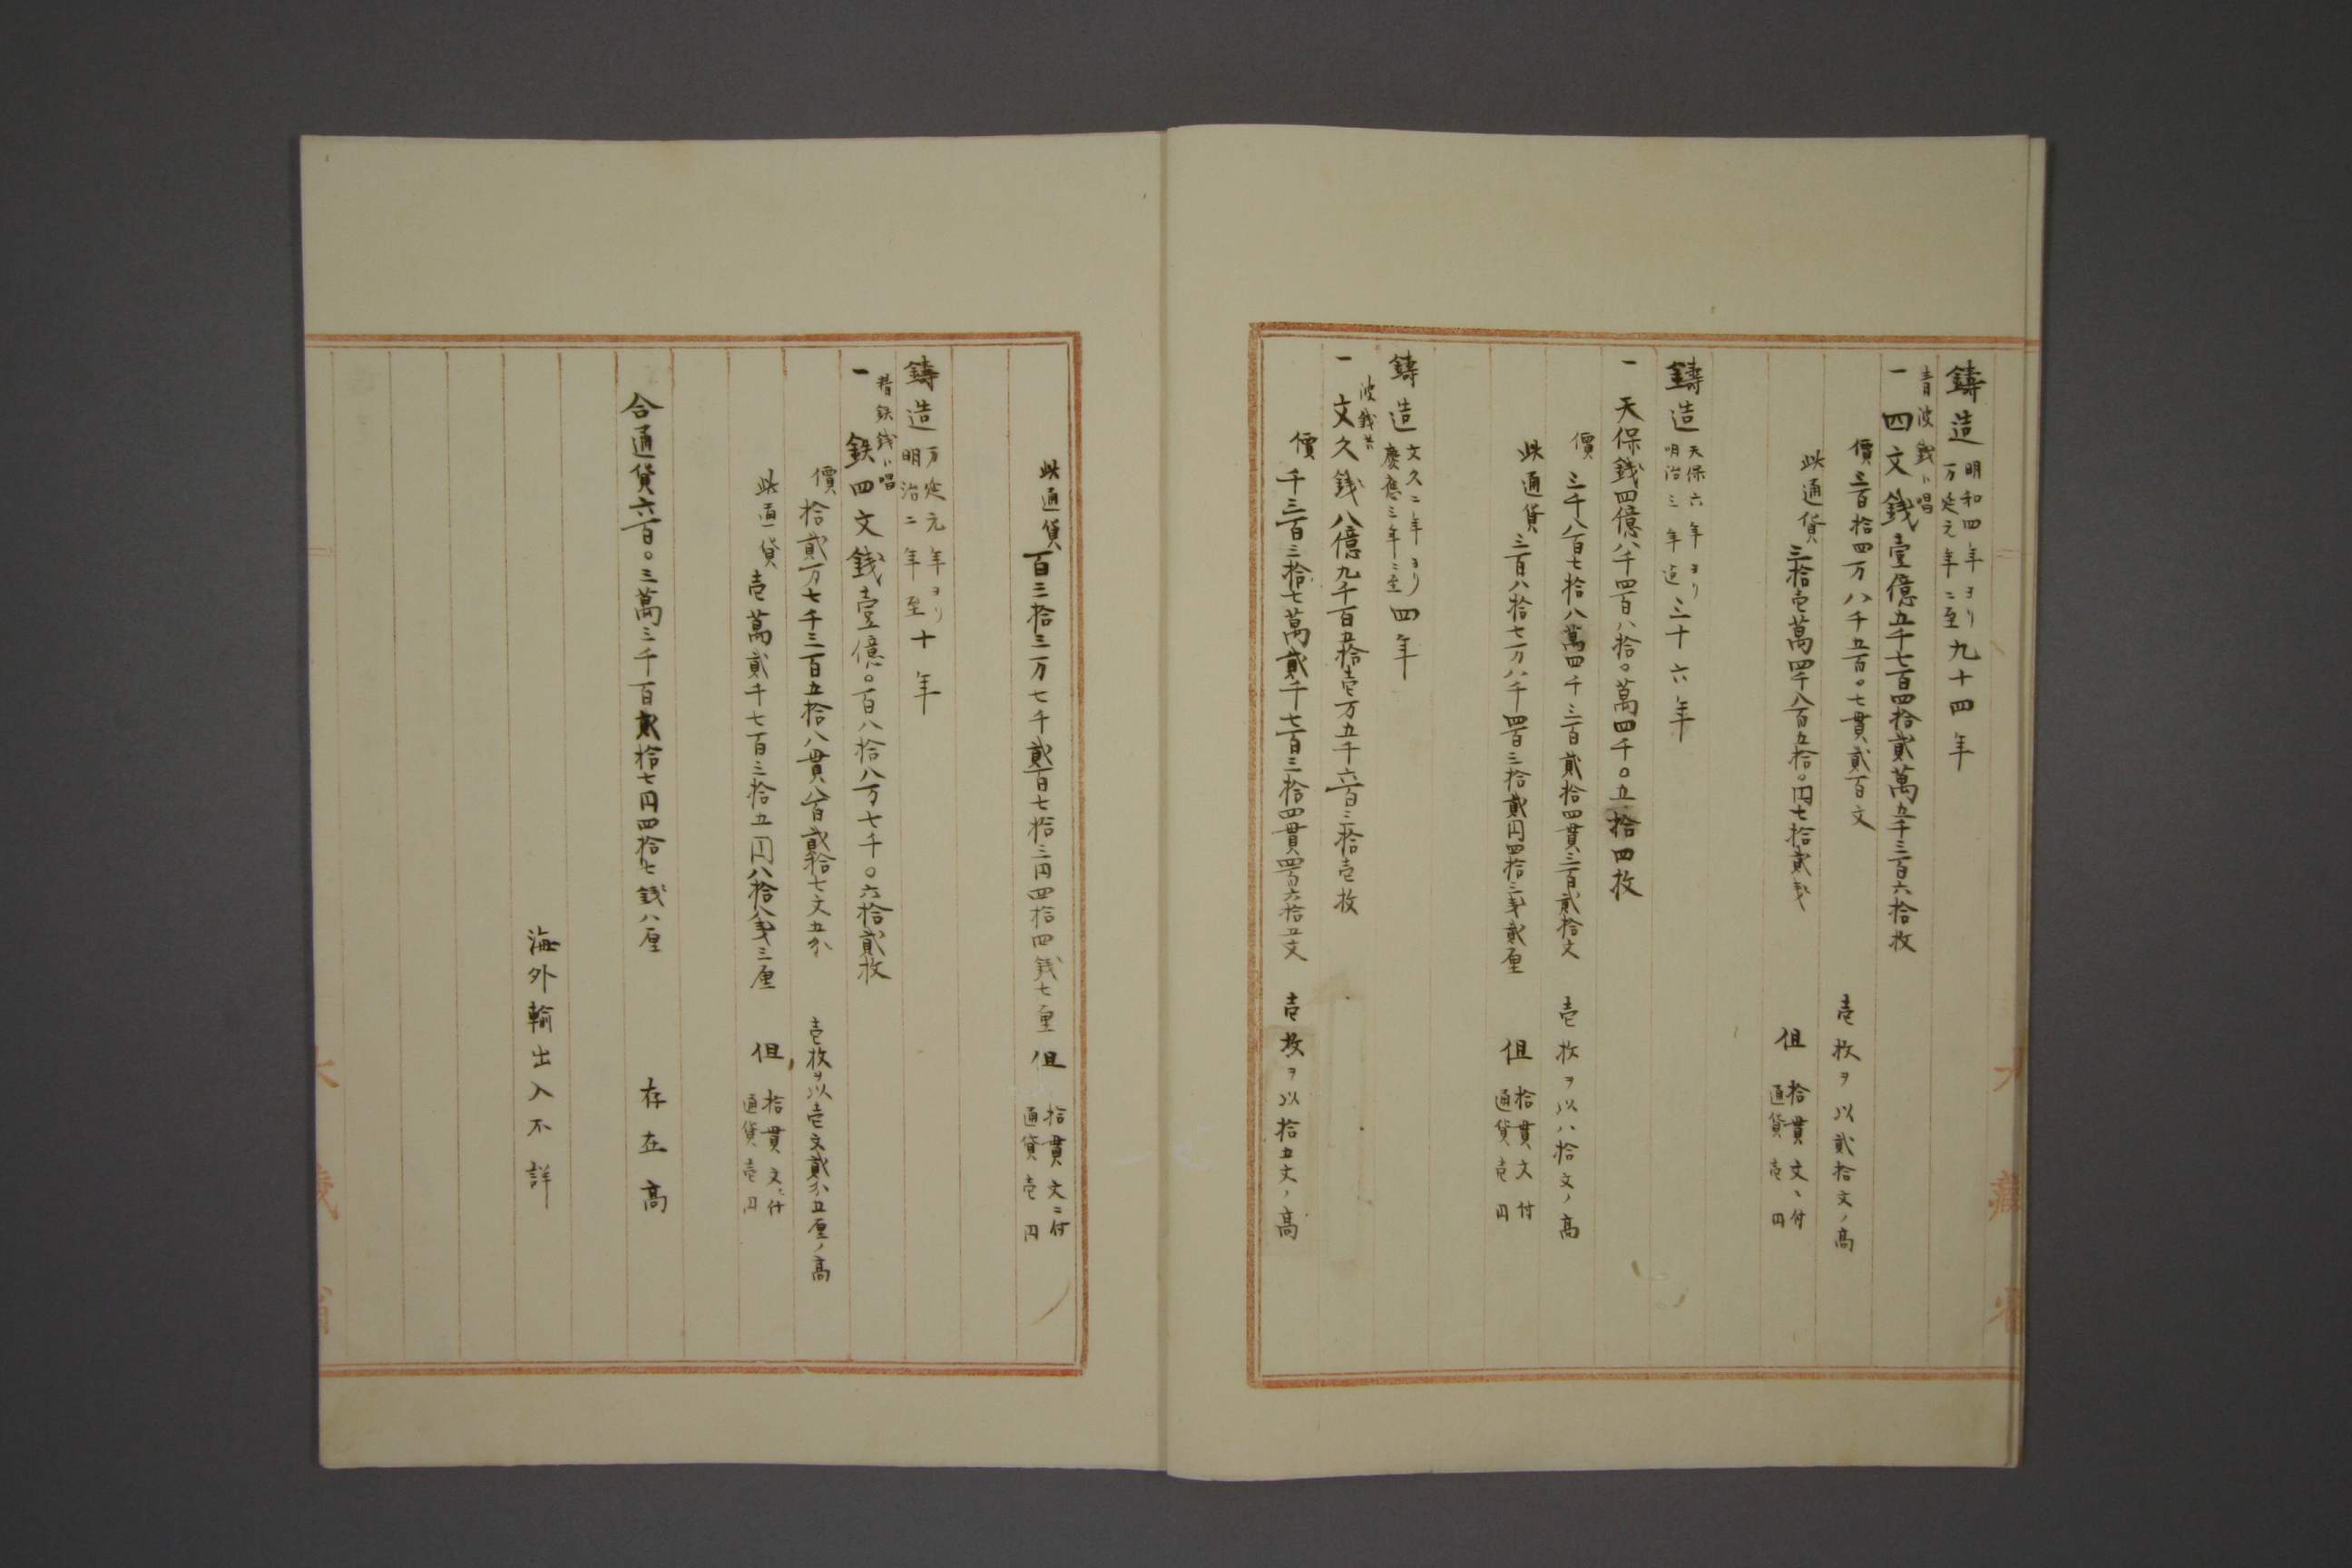 鋳造 明和四年ヨリ 万延元年ニ至 九十四年
青波銭ト唱
一 四文銭壹億五千七百四拾貳萬五千三百六拾枚
價三百拾四万八千五百〇七貫貳百文 壱枚ヲ以貳拾文ノ高
此通貨 三拾壱萬四千八百五拾〇円七拾貳銭 但 拾貫文ニ付 通貨壱円
鋳造 天保六年ヨリ 明治三年迄 三十六年
一 天保銭四億八千四百八拾〇萬四千〇五拾四枚
價 三千八百七拾八萬四千三百貳拾四貫三百貳拾文 壱枚ヲ以八拾文ノ高
此通貨 三百八拾七万八千四百三拾貳円四拾三銭貳厘 但 拾貫文付 通貨壱円
鋳造 文久二年ヨリ 慶應三年ニ至 四年
波銭共
一 文久銭八億九千百五拾壱万五千六百三拾壱枚
價 千三百三拾七萬貳千七百三拾四貫四百六拾五文 壱枚ヲ以拾五文ノ高
此通貨 百三拾三万七千貳百七拾三円四拾四銭七厘 但 拾貫文ニ付 通貨壱円
鋳造 万延元年ヨリ 明治二年至 十年
昔鉄銭ト唱
一 鉄四文銭壹億〇百八拾八万七千〇六拾貳枚
價 拾貳万七千三百五拾八貫八百貳拾七文五分 壱枚ヲ以壱文貳分五厘ノ高
此通貨 壱萬貳千七百三拾五円八拾八銭三厘 但 拾貫文ニ付 通貨壱円
合通貨六百〇三萬三千百貳拾七円四拾七銭八厘 存在高
海外輸出入不詳